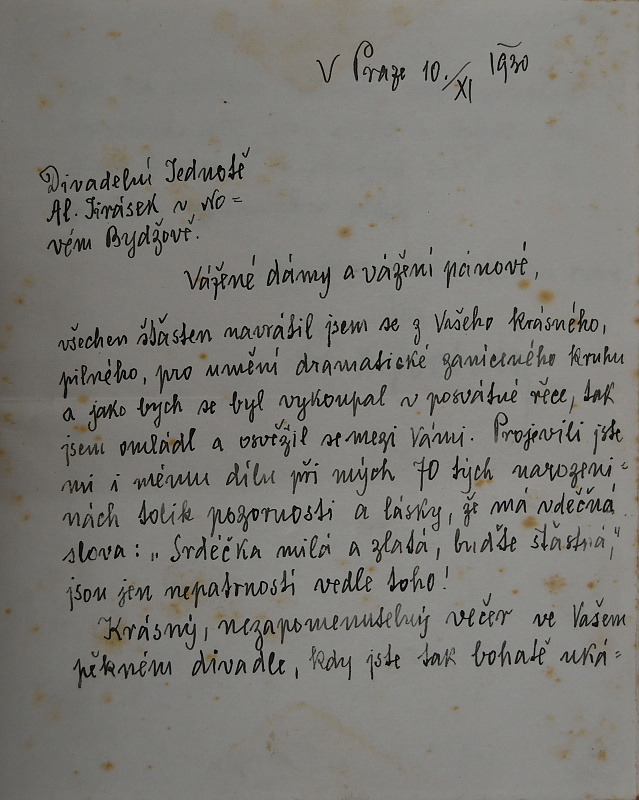 V Praze 10./XI 1930
Divadelní Jednotě
Al. Jirásek v No=
vém Bydžově.
Vážené dámy a vážení pánové,
všechen šťasten navrátil jsem se z Vašeho krásného,
pilného, pro umění dramatické zaníceného kruhu
a jako bych se byl vykoupal v posvátné řece, tak
jsem omládl a osvěžil se mezi Vámi. Projevili jste
mi i mému dílu při mých 70 tých narozeni=
nách tolik pozornosti a lásky, že má vděčná
slova: „Srdéčka milá a zlatá, buďte šťastná,"
jsou jen nepatrností vedle toho!
Krásný, nezapomenutelný večer ve Vašem
pěkném divadle, kdy jste tak bohatě uká=